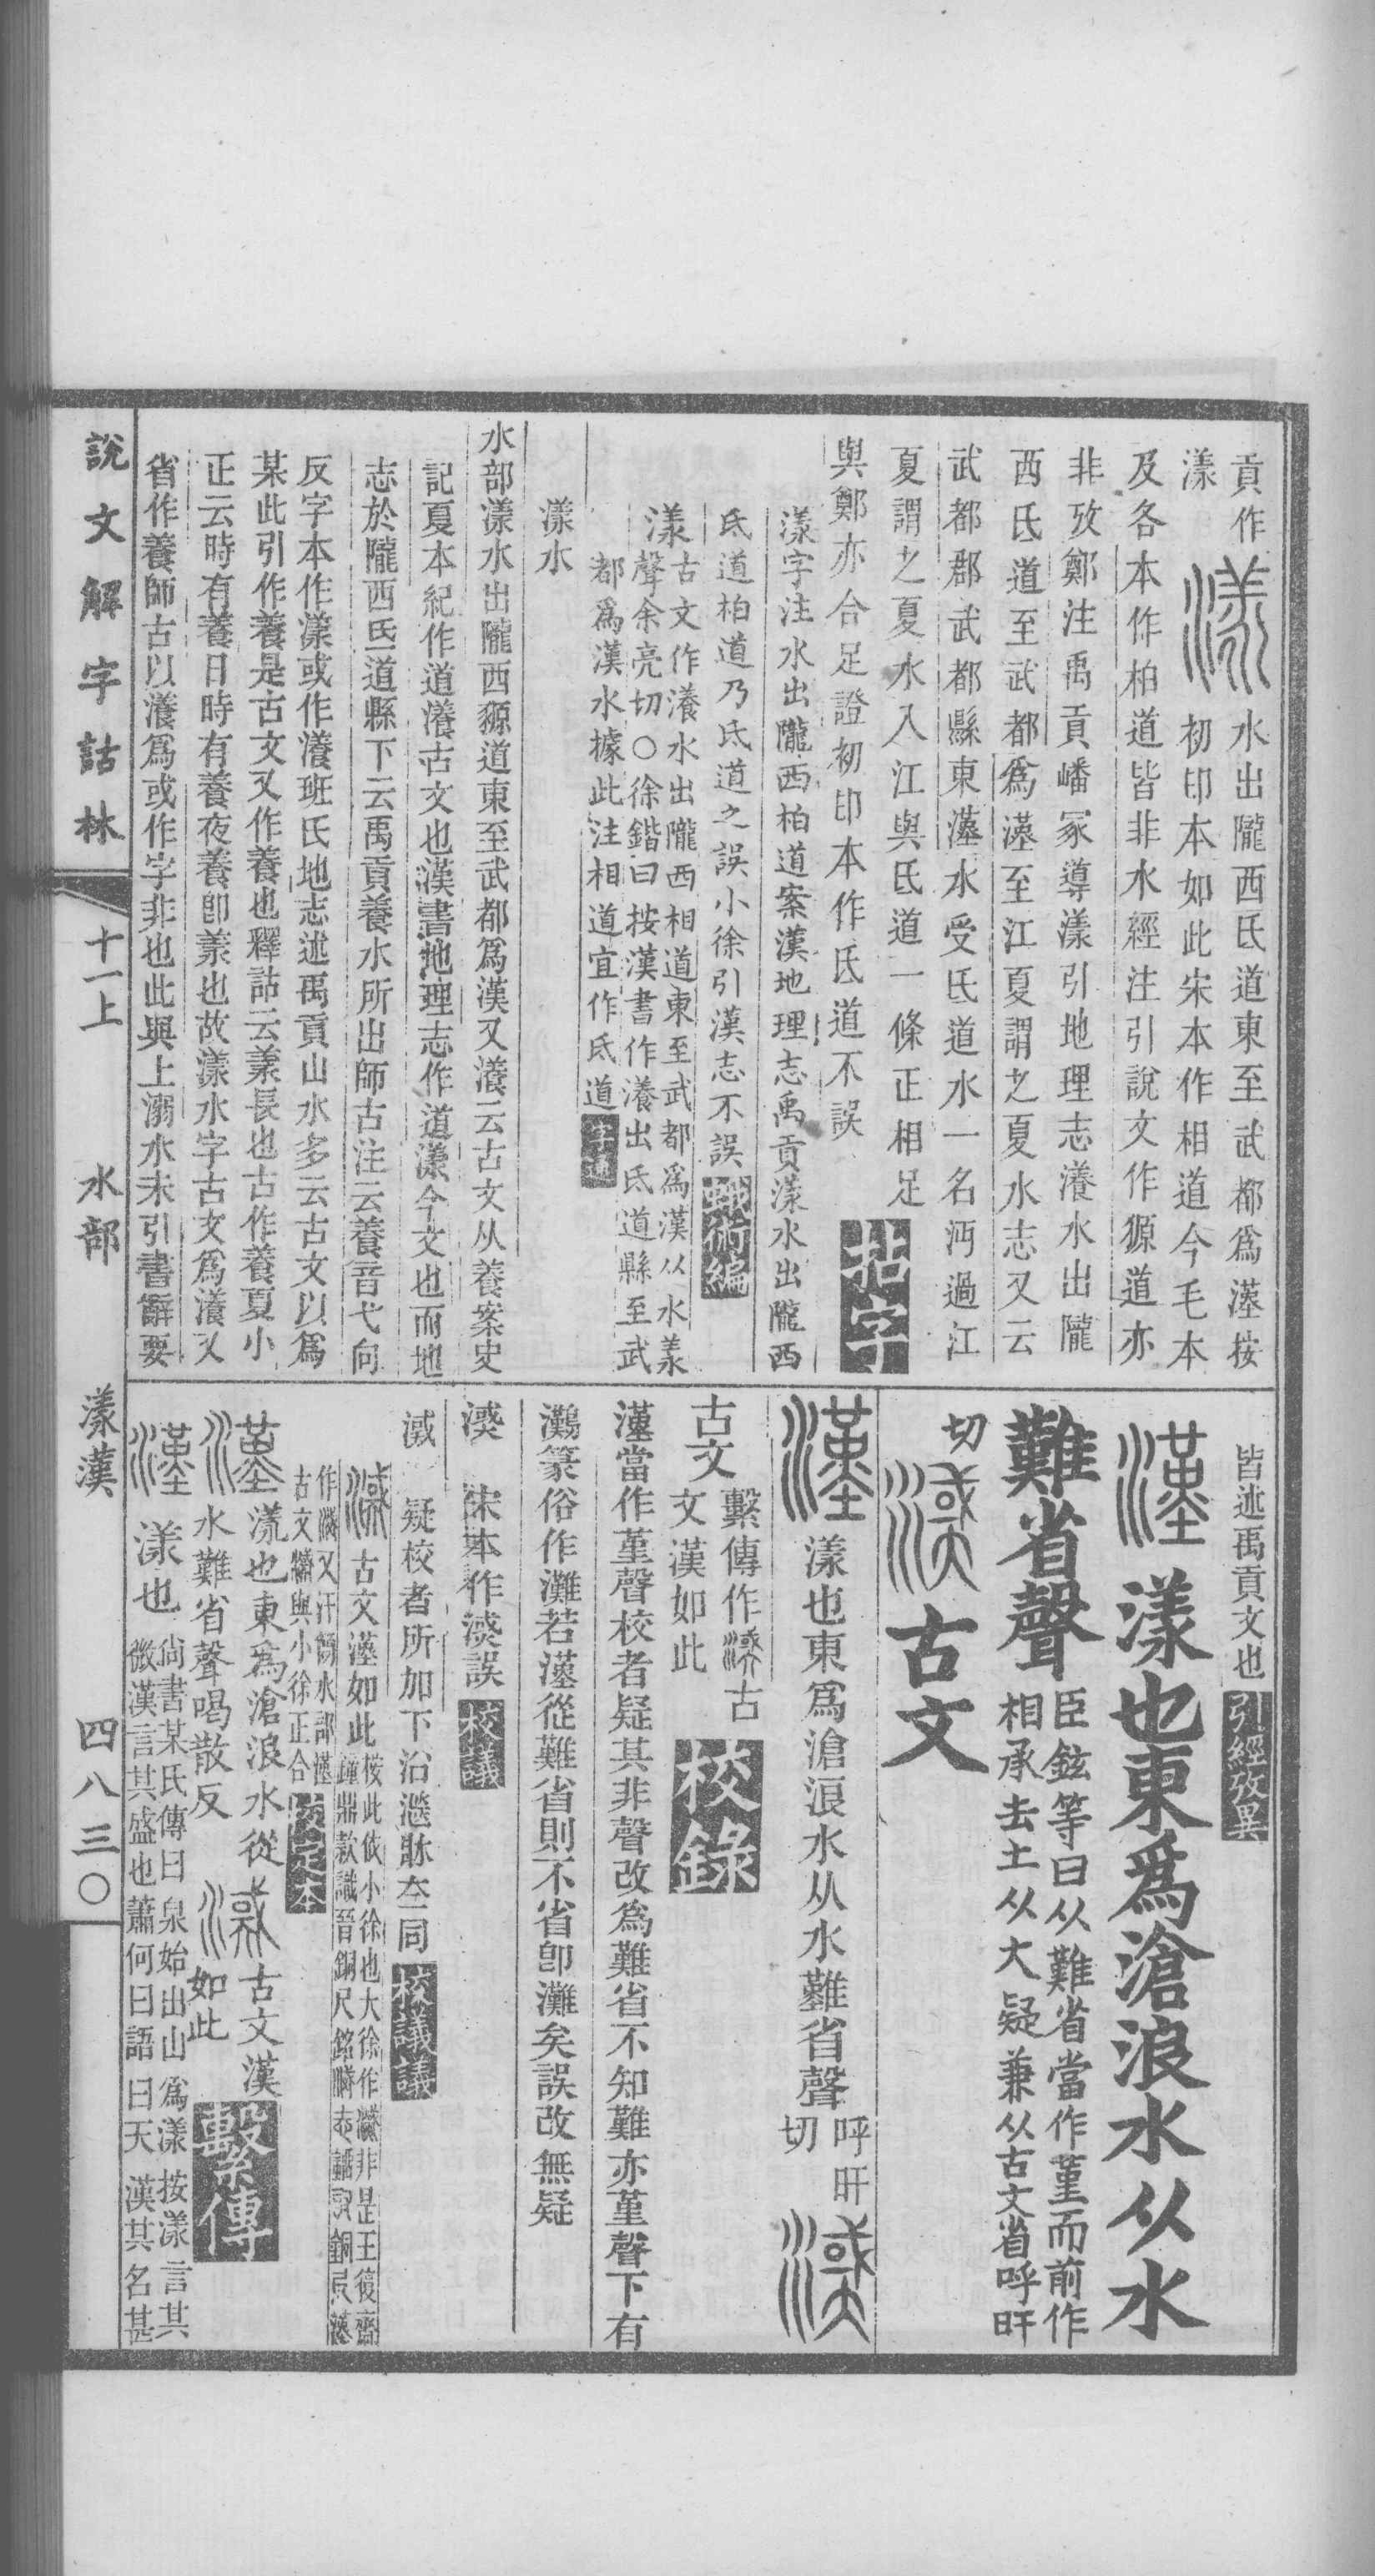 貢作
漾
漾水出隴西氐道東至武都爲漢按
初印本如此宋本作相道今毛本
及各本作柏道皆非水經注引說文作獂道亦
非攷鄭注禹貢嶓冢導漾引地理志瀁水出隴
西氐道至武都爲漢至江夏謂之夏水志又云
武都郡武都縣東漢水受氐道水一名沔過江
夏謂之夏水入江與氐道一條正相足
與鄭亦合足證初印本作氐道不誤
漾字注水出隴西柏道案漢地理志禹貢漾水出隴西
氐道柏道乃氐道之誤小徐引漢志不誤 蛾術編
漾古文作瀁水出隴西相道東至武都爲漢从水羕
聲余亮切○徐鍇曰按漢書作瀁出氐道縣至武
都爲漢水據此注相道宜作氐道
漾水
水部漾水出隴西獂道東至武都爲漢又瀁云古文从養案史
記夏本紀作道瀁古文也漢書地理志作道漾今文也而地
志於隴西氐道縣下云禹貢養水所出師古注云養音弋向
反字本作漾或作瀁班氏地志述禹貢山水多云古文以爲
某此引作養是古文又作養也釋詁云羕長也古作養夏小
正云時有養日時有養夜養卽羕也故漾水字古文爲瀁又
省作養師古以瀁爲或作字非也此與上溺水未引書辭要
皆述禹貢文也 引經攷異
漢 漾也東爲滄浪水从水
難省聲 臣鉉等曰从難省當作堇而前作
相承去土从大疑兼从古文省呼旰
切 古文
漢 漾也東爲滄浪水从水難省聲 呼旰
切
古文 繫傳作 古
文漢如此 校錄
漢當作堇聲校者疑其非聲改爲難省不知難亦堇聲下有
灘篆俗作灘若漢從難省則不省卽灘矣誤改無疑
宋本作 誤 校議
疑校者所加下沿 同 校議議
古文漢如此 按此依小徐也大徐作 非是王復齋
鐘鼎款識晉銅尺銘
作 又汗簡水部
古文 與小徐正合
漢 漾也東爲滄浪水從
水難省聲喝散反 古文漢
如此 繫傳
漢 漾也 尙書某氏傳曰泉始出山爲漾按漾言其
微漢言其盛也蕭何曰語曰天漢其名甚
說文解字詁林 十一上 水部 漾漢 四八三○